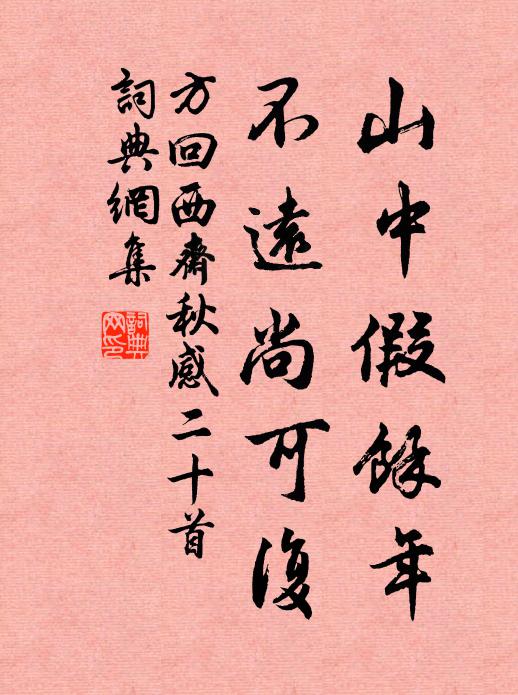 山中假餘年
不遠尚可復
方回西齋秋感二十首
詞典網集
詞典網印